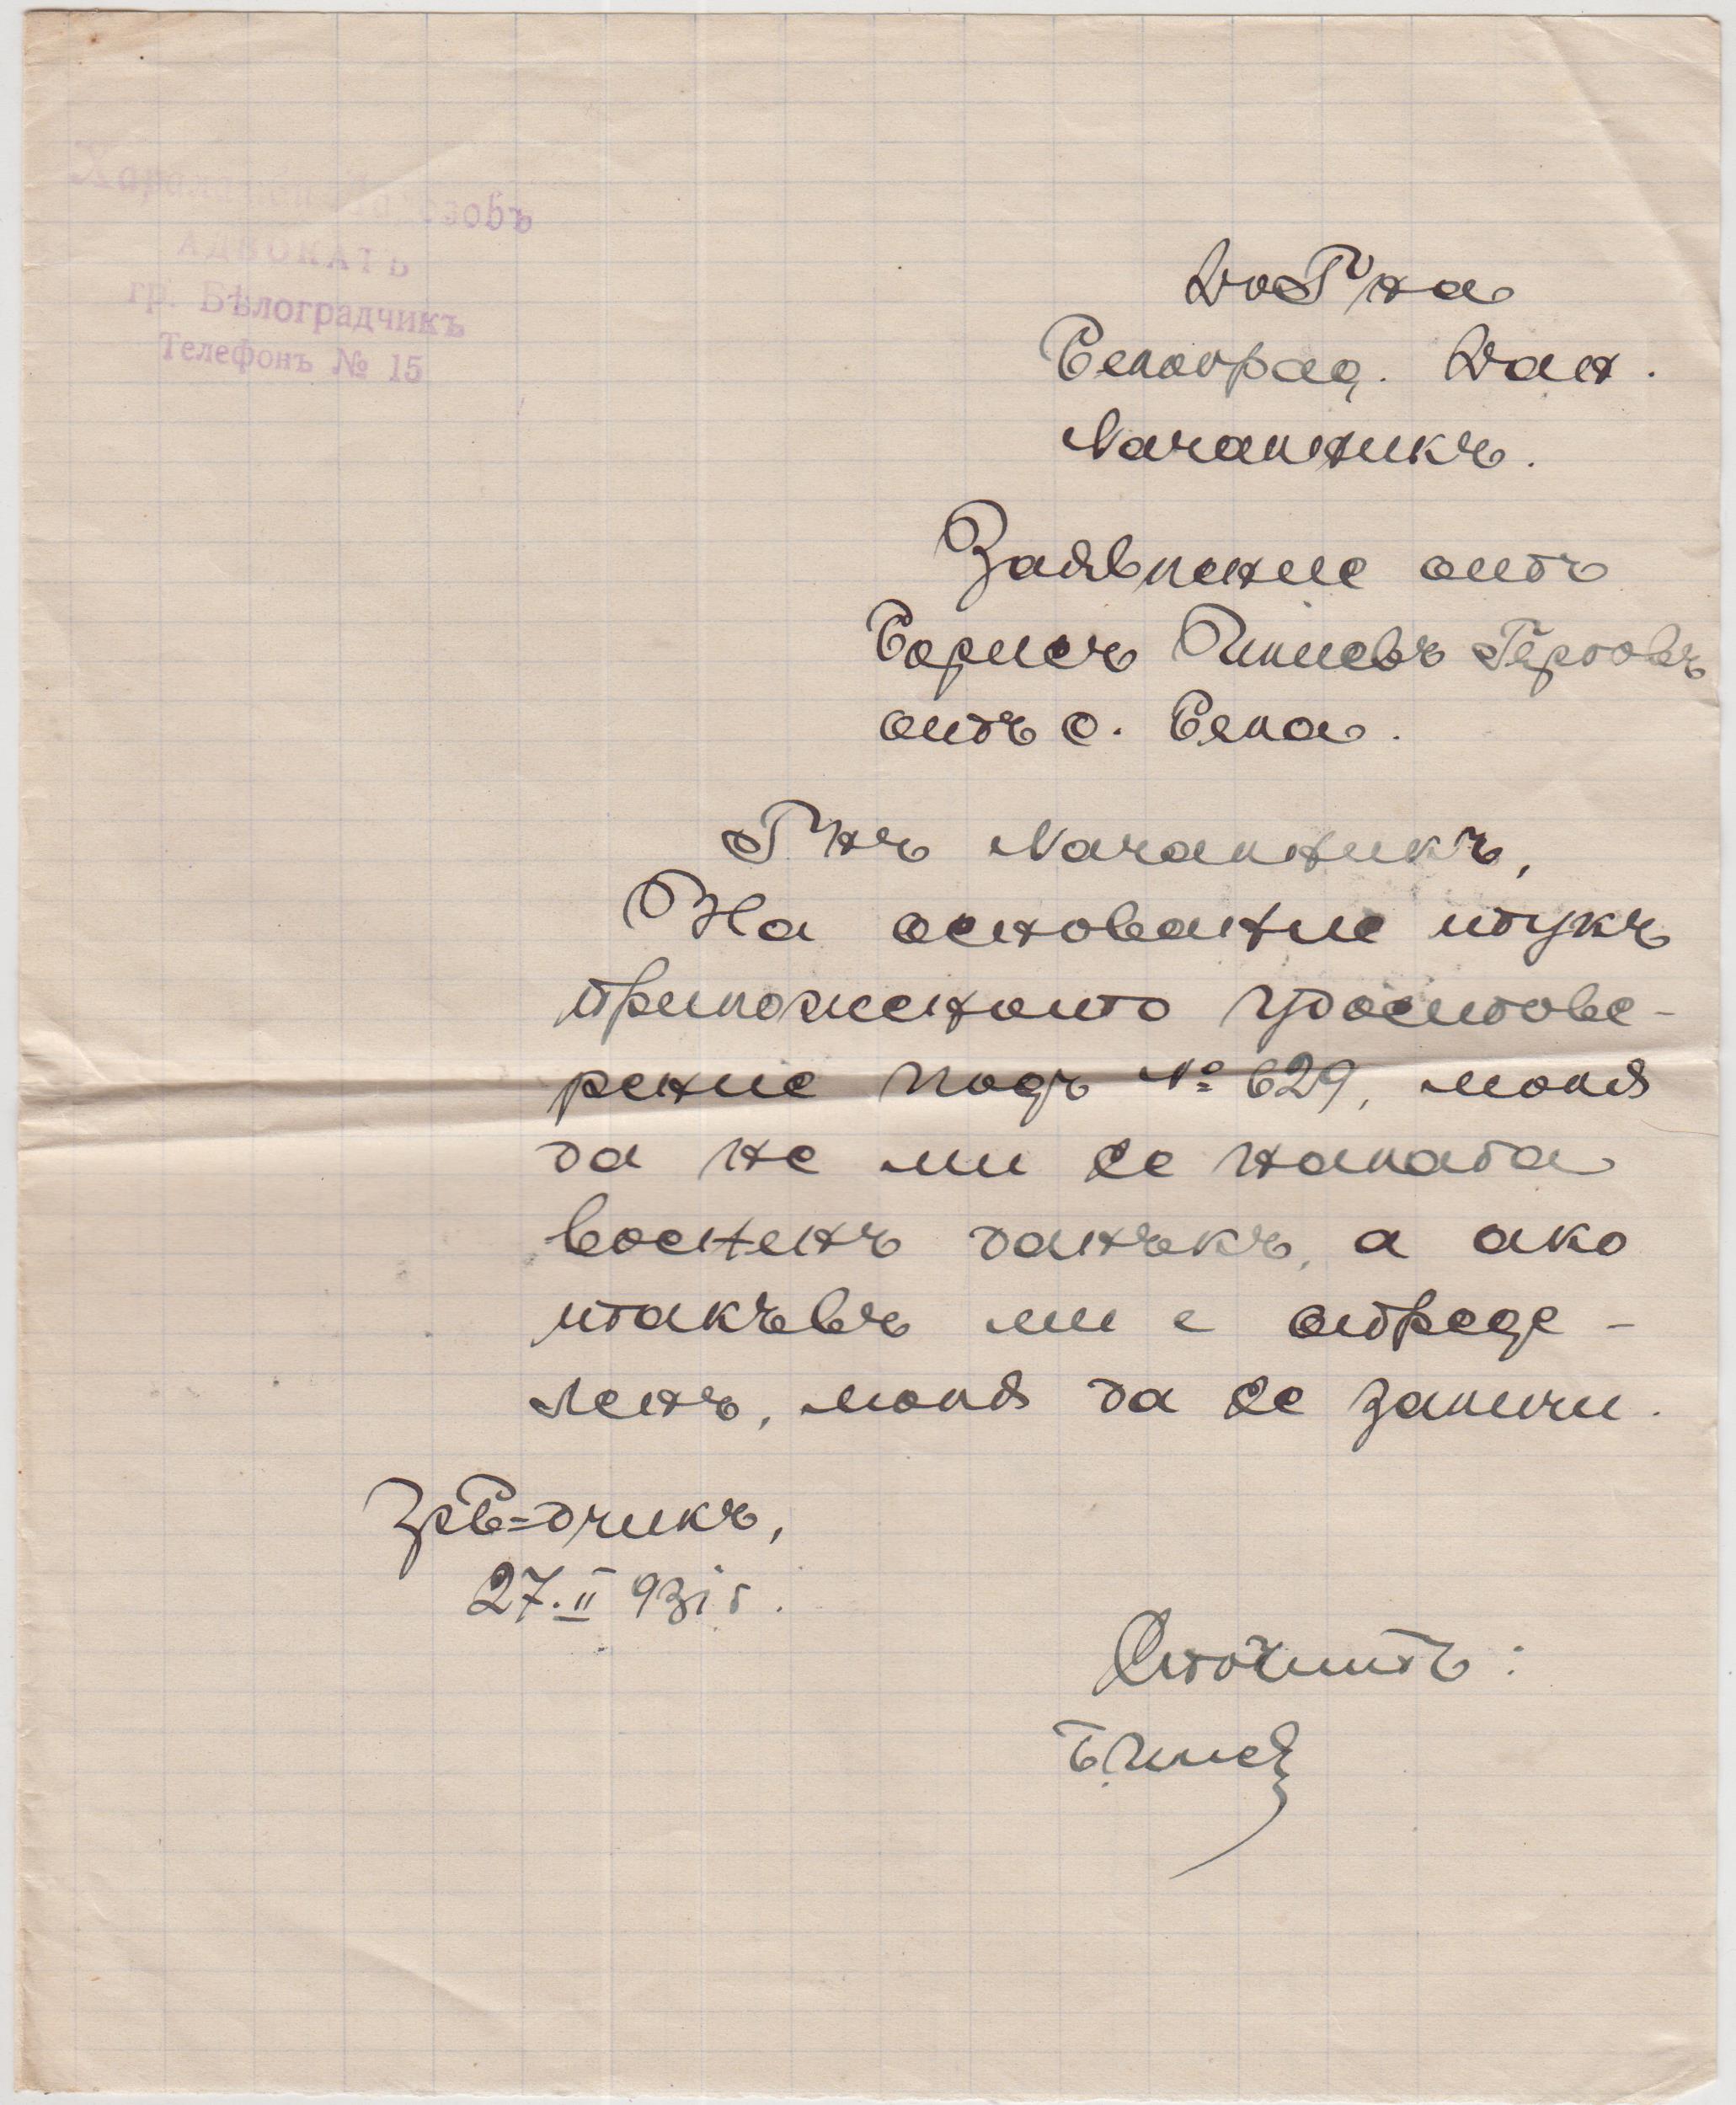 зовъ
АДВОКАТЪ
гр. Бѣлоградчикъ
Телефонъ № 15
До Г на
Белоград. Дан.
Началникъ.
Заявление отъ
Борисъ Илиевъ
отъ с. Бела.
Г нъ Началникъ,
На основание тукъ
приложеното удостове-
рение подъ № 629, моля
да не ми се налага
военен данъкъ, а ако
такъвъ ми е опреде-
ленъ, моля да се заличи.
гр Б=дчикъ,
27.II 931 г.
Съ почитъ: